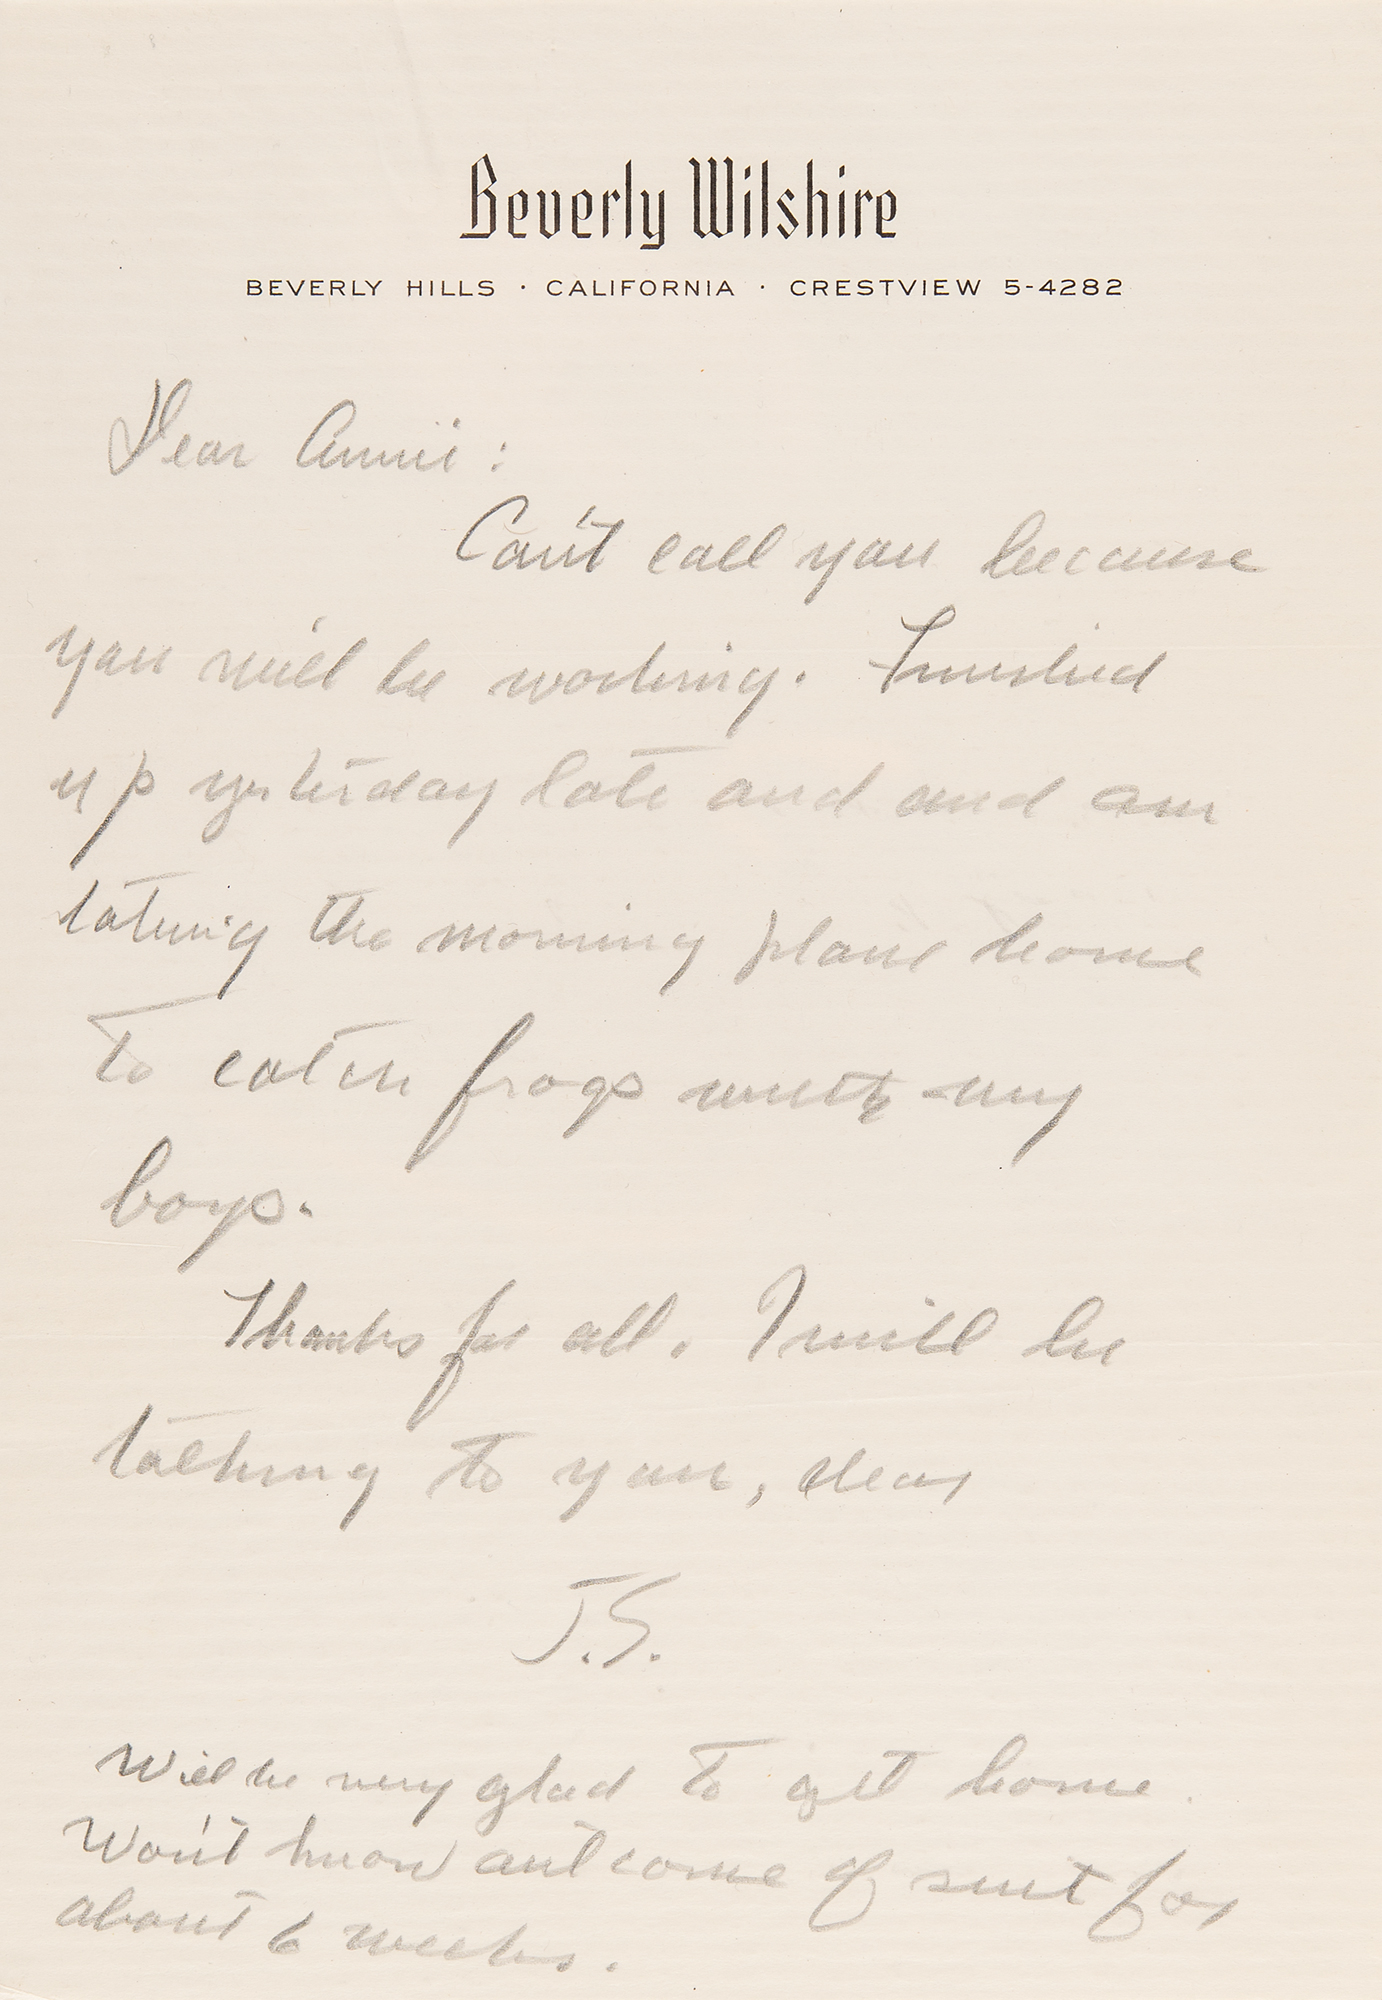 Beverly Wilshire
BEVERLY HILLS · CALIFORNIA · CRESTVIEW 5-4282
Dear Annie:
Can't call you because
you will be working. Finished
up yesterday late and and am
taking the morning plane home
to catch frogs with my
boys.
Thanks for all. I will be
talking to you, dear
J.S.
Will be very glad to get home.
Won't know outcome of suit for
about 6 weeks.